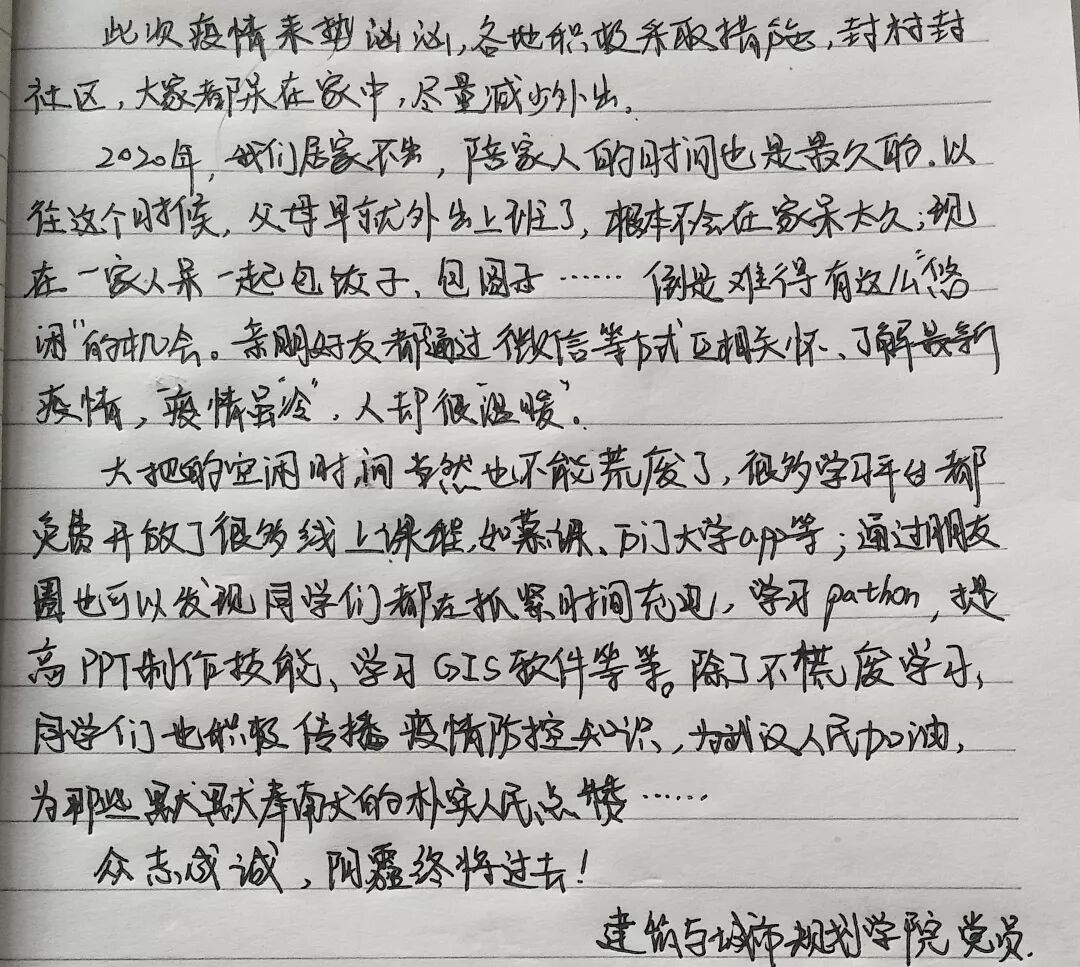 此次疫情来势汹汹,各地积极采取措施,封村封
社区,大家都呆在家中,尽量减少外出。
2020年,我们居家不出,陪家人的时间也是最久的.以
往这个时候,父母早就外出上班了,根本不会在家呆太久;现
在一家人呆一起包饺子、包圆子……倒是难得有这么“悠
闲”的机会。亲朋好友都通过微信等方式互相关怀、了解最新
疫情,“疫情虽‘冷’,人却很‘温暖’”。
大把的空闲时间当然也不能荒废了,很多学习平台都
免费开放了很多线上课程,如慕课、万门大学app等;通过朋友
圈也可以发现同学们都在抓紧时间充电,学习pathon,提
高PPT制作技能、学习GIS软件等等。除了不慌废学习,
同学们也积极传播疫情防控知识,为武汉人民加油,
为那些默默奉献的朴实人民点赞……
众志成诚,阴霾终将过去!
建筑与城市规划学院党员.